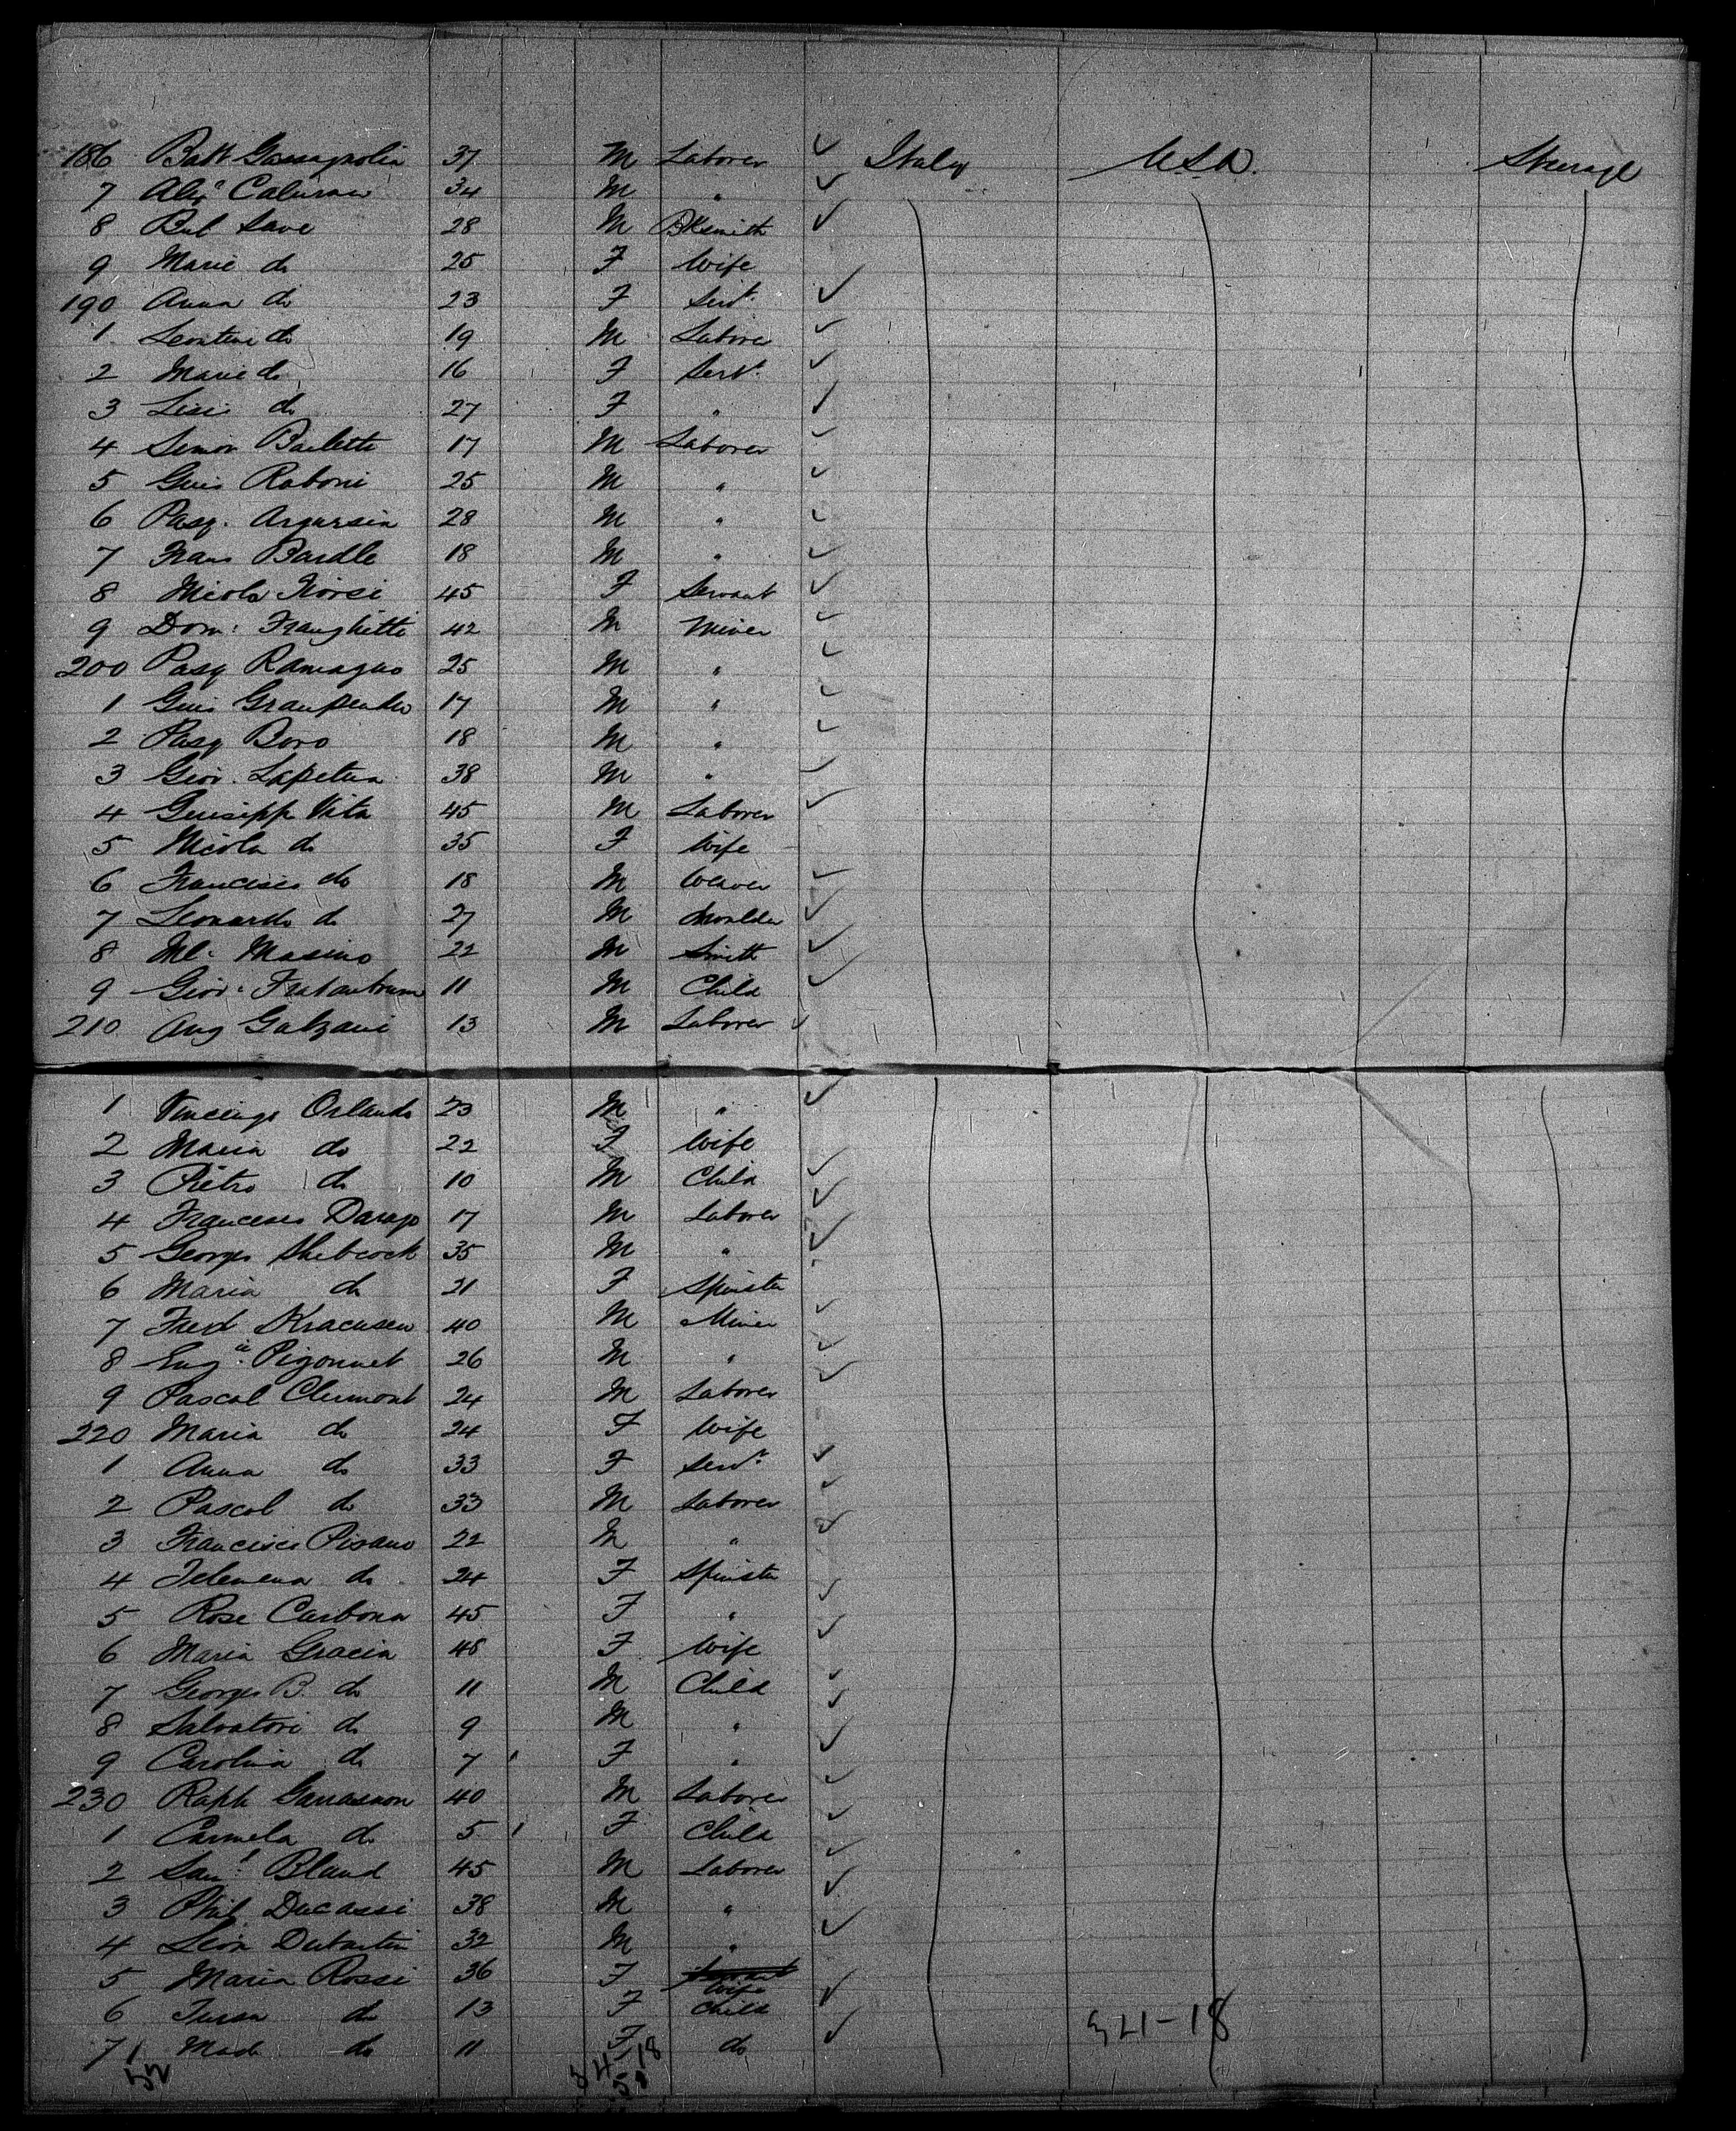 186 Batt 37 M Laborer ✓ Italy U.S.A. Steerage
7 Alexr 34 M " ✓
8 Bel Save 28 M Bksmith ✓
9 Marie do 25 F Wife
190 Anna do 23 F Servt. ✓
1 do 19 M Labore ✓
2 Marie do 16 F Servt. ✓
3 do 27 F " ✓
4 Simon Barlette 17 M Laborer ✓
5 Guis Raboni 25 M " ✓
6 Pasq. 28 M " ✓
7 Frans Bardle 18 M " ✓
8 Nicola 45 F Servant ✓
9 Dom: Franghitti 42 M Miner ✓
200 Pasq Ramagno 25 M " ✓
1 Guis 17 M " ✓
2 Pasq Boro 18 M " ✓
3 Giov. Lapetua 38 M " ✓
4 Guisipp Vita 45 M Laborer ✓
5 Nicola do 35 F Wife
6 Francisco do 18 M Weaver ✓
7 Leonardo do 27 M Moulder ✓
8 Ml. Masino 22 M Smith ✓
9 Giov. 11 M Child ✓
210 Aug Galzani 13 M Laborer ✓
1 Vincenzo Orlando 23 M " ✓
2 Maria do 22 F Wife
3 Pietro do 10 M Child ✓
4 Francesco Darago 17 M Laborer ✓
5 Georges Shebcock 35 M " ✓
6 Maria do 21 F Spinster
7 Fred Kracusen 40 M Miner ✓
8 Euge. Pigonnet 26 M " ✓
9 Pascal Clermont 24 M Laborer ✓
220 Maria do 24 F Wife
1 Anna do 33 F Servt. ✓
2 Pascal do 33 M Laborer ✓
3 Francisco Pisano 22 M " ✓
4 Filemena do 24 F Spinster ✓
5 Rosi Carbona 45 F " ✓
6 Maria Gracia 48 F Wife
7 Georges B. do 11 M Child ✓
8 Salvatori do 9 M " ✓
9 Carolina do 7 F " ✓
230 Raph 40 M Laborer ✓
1 Carmela do 5 F Child ✓
2 Saml Bland 45 M Laborer ✓
3 Phil. Ducassi 38 M " ✓
4 Leon Dubartin 32 M " ✓
5 Maria Rossi 36 F Wife
6 do 13 F Child ✓
7 do 11 F do ✓
52 34-18 34-18